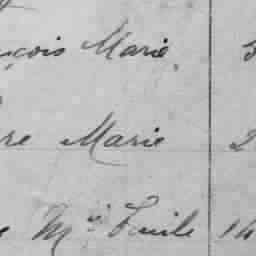 çois Marie
re Marie 2
Mie Emile 14